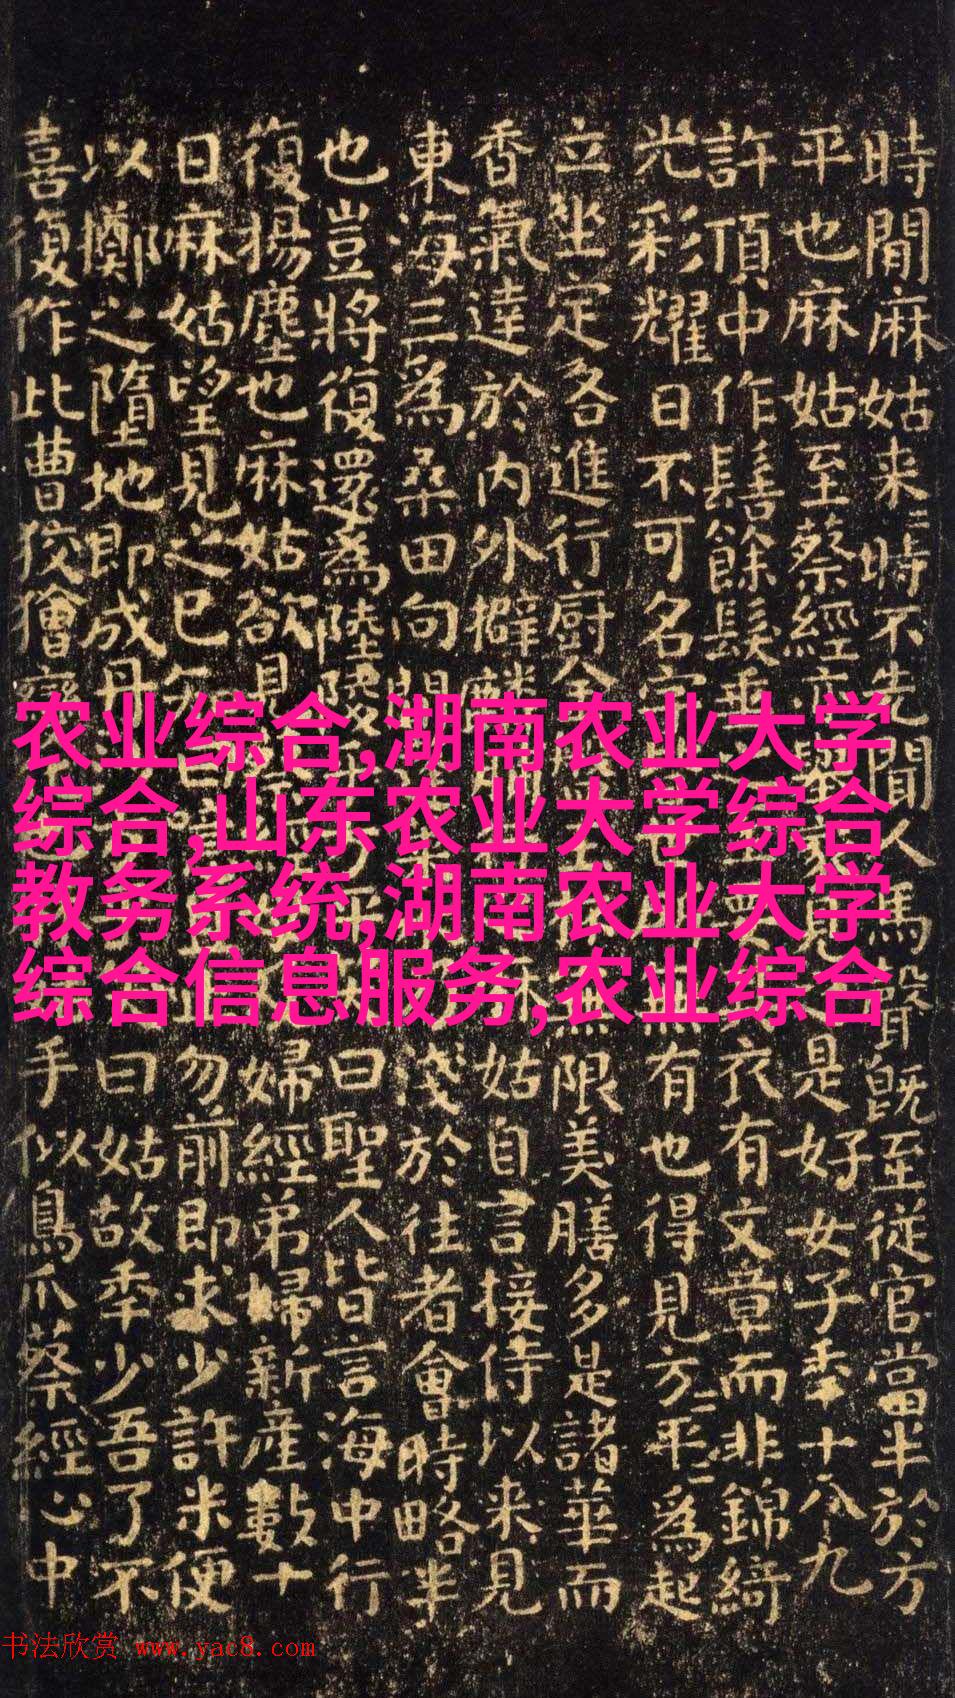 時間麻姑来〻時不先聞人馬聲既至従官當半於方
平也麻姑至蔡經亦是好女子年十八九
許頂中作髻餘髮垂衣有文章而非錦綺
光彩耀日不可名字有也得見方平〻為起
立坐定各進行厨金限美膳多是諸華而
香氣達於内外擗麟姑自言接侍以来見
東海三為桑田向間淺於往者會時略半
也豈將復還為陸陵曰聖人皆言海中行
復揚塵也麻姑欲見婦經弟婦新産數十
日麻姑望見之已知勿前即求少許米便
以擲之墮地即成丹曰姑故年少吾了不
喜復作此曹狡獪變手似鳥爪蔡經心中
农业综合,湖南农业大学
综合,山东农业大学综合
教务系统,湖南农业大学
综合信息服务,农业综合
书法欣赏 www.yac8.com